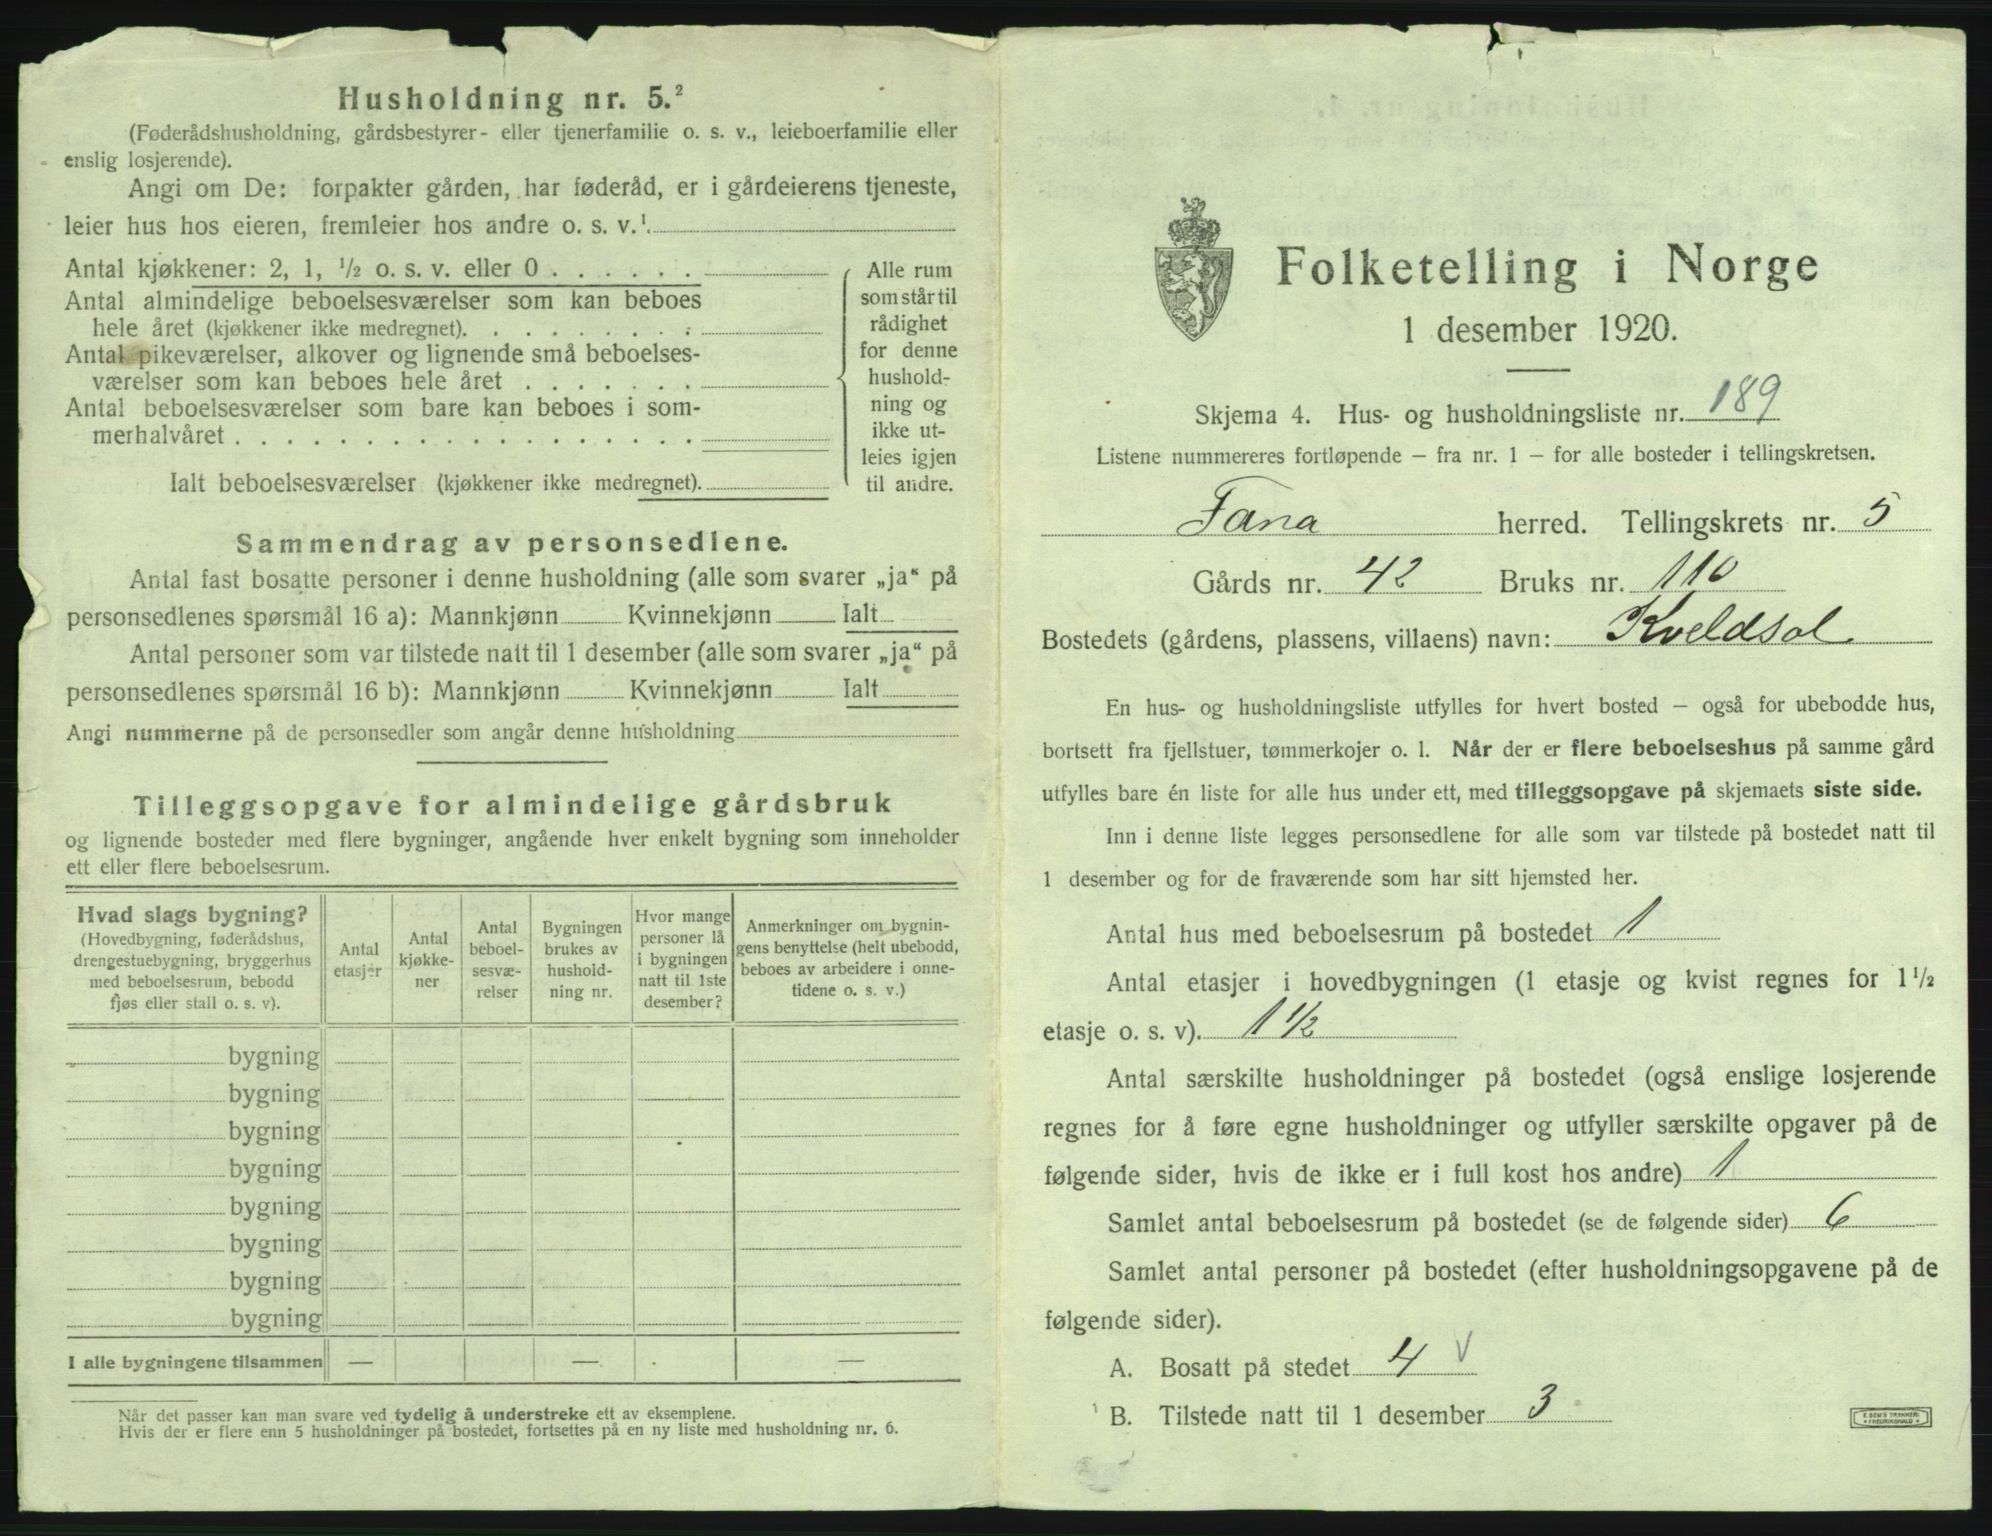 Husholdning nr. 5.²
(Føderådshusholdning, gårdsbestyrer- eller tjenerfamilie o. s. v., leieboerfamilie eller
enslig losjerende).
Angi om De: forpakter gården, har føderåd, er i gårdeierens tjeneste,
leier hus hos eieren, fremleier hos andre o. s. v.¹.
Antal kjøkkener: 2, 1, ½ o. s. v. eller 0 . . . . . .
Antal almindelige beboelsesværelser som kan beboes
hele året (kjøkkener ikke medregnet). . . . . . . . .
Antal pikeværelser, alkover og lignende små beboelses-
værelser som kan beboes hele året . . . . . . .
Antal beboelsesværelser som bare kan beboes i som-
merhalvåret . . . . . . . . . . . . . . . . . .
Ialt beboelsesværelser (kjøkkener ikke medregnet).
Alle rum
som står til
rådighet
for denne
hushold-
ning og
ikke ut-
leies igjen
til andre.
Sammendrag av personsedlene.
Antal fast bosatte personer i denne husholdning (alle som svarer „ja“ på
personsedlenes spørsmål 16 a): Mannkjønn Kvinnekjønn Ialt
Antal personer som var tilstede natt til 1 desember (alle som svarer „ja“ på
personsedlenes spørsmål 16 b): Mannkjønn Kvinnekjønn Ialt
Angi nummerne på de personsedler som angår denne husholdning
Tilleggsopgave for almindelige gårdsbruk
og lignende bosteder med flere bygninger, angående hver enkelt bygning som inneholder
ett eller flere beboelsesrum.
Hvad slags bygning?
(Hovedbygning, føderådshus,
drengestuebygning, bryggerhus
med beboelsesrum, bebodd
fjøs eller stall o. s. v).
Antal
etasjer
Antal
kjøkke-
ner
Antal
beboel-
sesvæ-
relser
Bygningen
brukes av
hushold-
ning nr.
Hvor mange
personer lå
i bygningen
natt til 1ste
desember?
Anmerkninger om bygnin-
gens benyttelse (helt ubebodd,
beboes av arbeidere i onne-
tidene o. s. v.)
bygning
bygning
bygning
bygning
bygning
bygning
bygning
bygning
I alle bygningene tilsammen — — —
Når det passer kan man svare ved tydelig å understreke ett av eksemplene.
Hvis der er flere enn 5 husholdninger på bostedet, fortsettes på en ny liste med husholdning nr. 6.
Folketelling i Norge
1 desember 1920.
Skjema 4. Hus- og husholdningsliste nr. 189
Listene nummereres fortløpende — fra nr. 1 — for alle bosteder i tellingskretsen.
Fana herred. Tellingskrets nr. 5
Gårds nr. 42 Bruks nr. 110
Bostedets (gårdens, plassens, villaens) navn: Kveldsol
En hus- og husholdningsliste utfylles for hvert bosted — også for ubebodde hus,
bortsett fra fjellstuer, tømmerkojer o. l. Når der er flere beboelseshus på samme gård
utfylles bare én liste for alle hus under ett, med tilleggsopgave på skjemaets siste side.
Inn i denne liste legges personsedlene for alle som var tilstede på bostedet natt til
1 desember og for de fraværende som har sitt hjemsted her.
Antal hus med beboelsesrum på bostedet 1
Antal etasjer i hovedbygningen (1 etasje og kvist regnes for 1½
etasje o. s. v). 1½
Antal særskilte husholdninger på bostedet (også enslige losjerende
regnes for å føre egne husholdninger og utfyller særskilte opgaver på de
følgende sider, hvis de ikke er i full kost hos andre) 1
Samlet antal beboelsesrum på bostedet (se de følgende sider) 6
Samlet antal personer på bostedet (efter husholdningsopgavene på de
følgende sider).
A. Bosatt på stedet 4 V
B. Tilstede natt til 1 desember 3
E. SEM'S TRYKKERI
FREDRIKSHALD